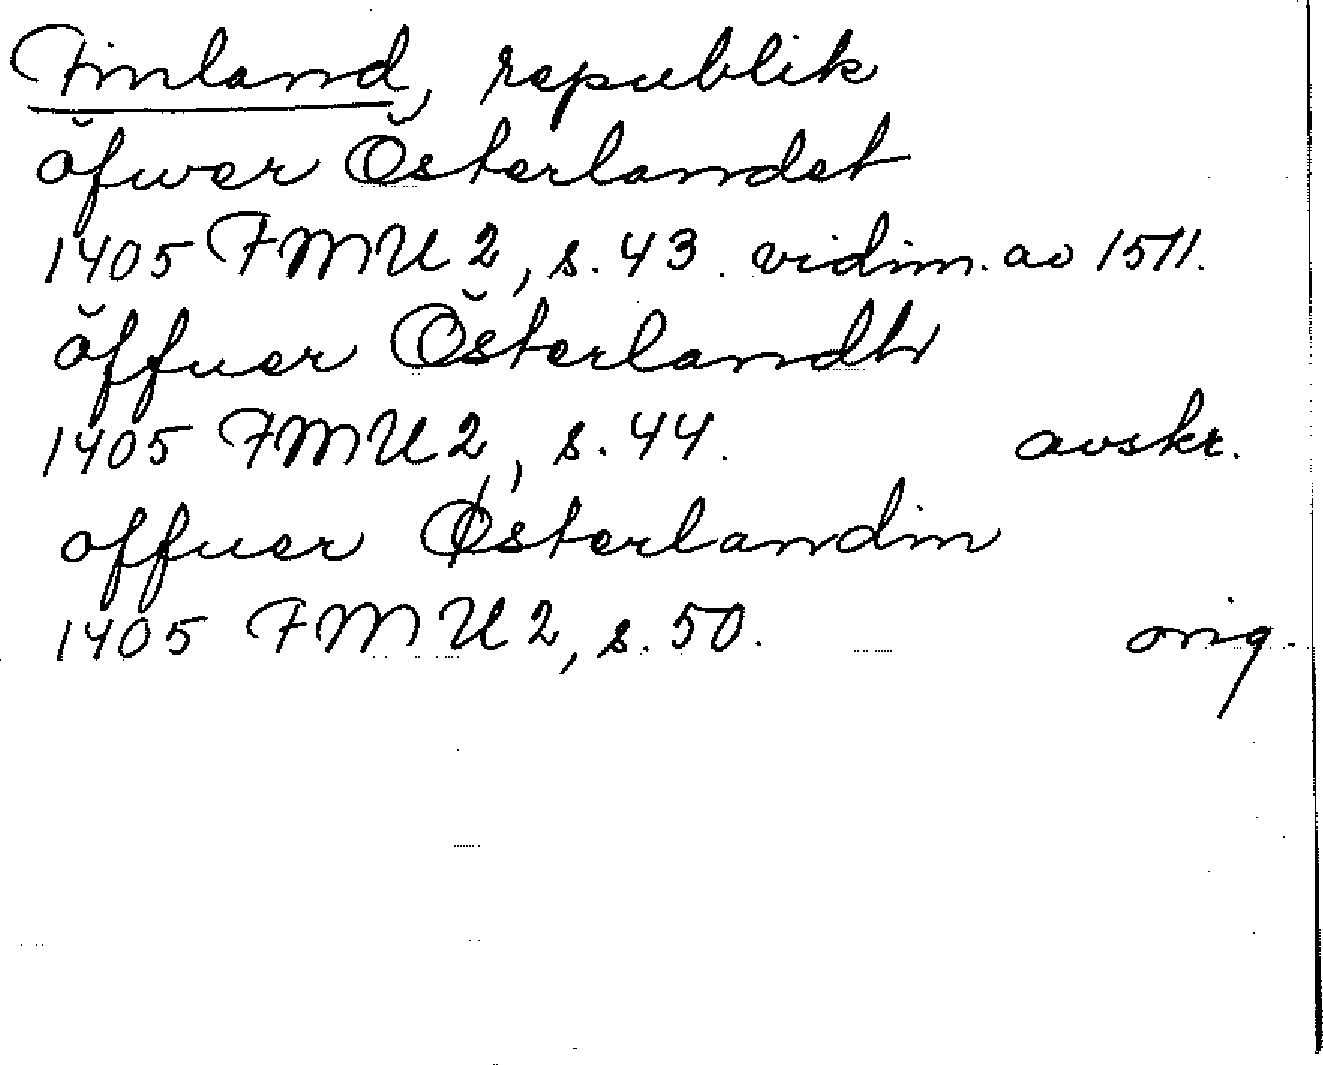 Finland, republik
öfwer Österlandet
1405 FMU 2, s. 43. vidim. av 1511.
öffuer Österlandh
1405 FMU 2, s. 44. avskr.
offuer Østerlandin
1405 FMU 2, s. 50. orig.